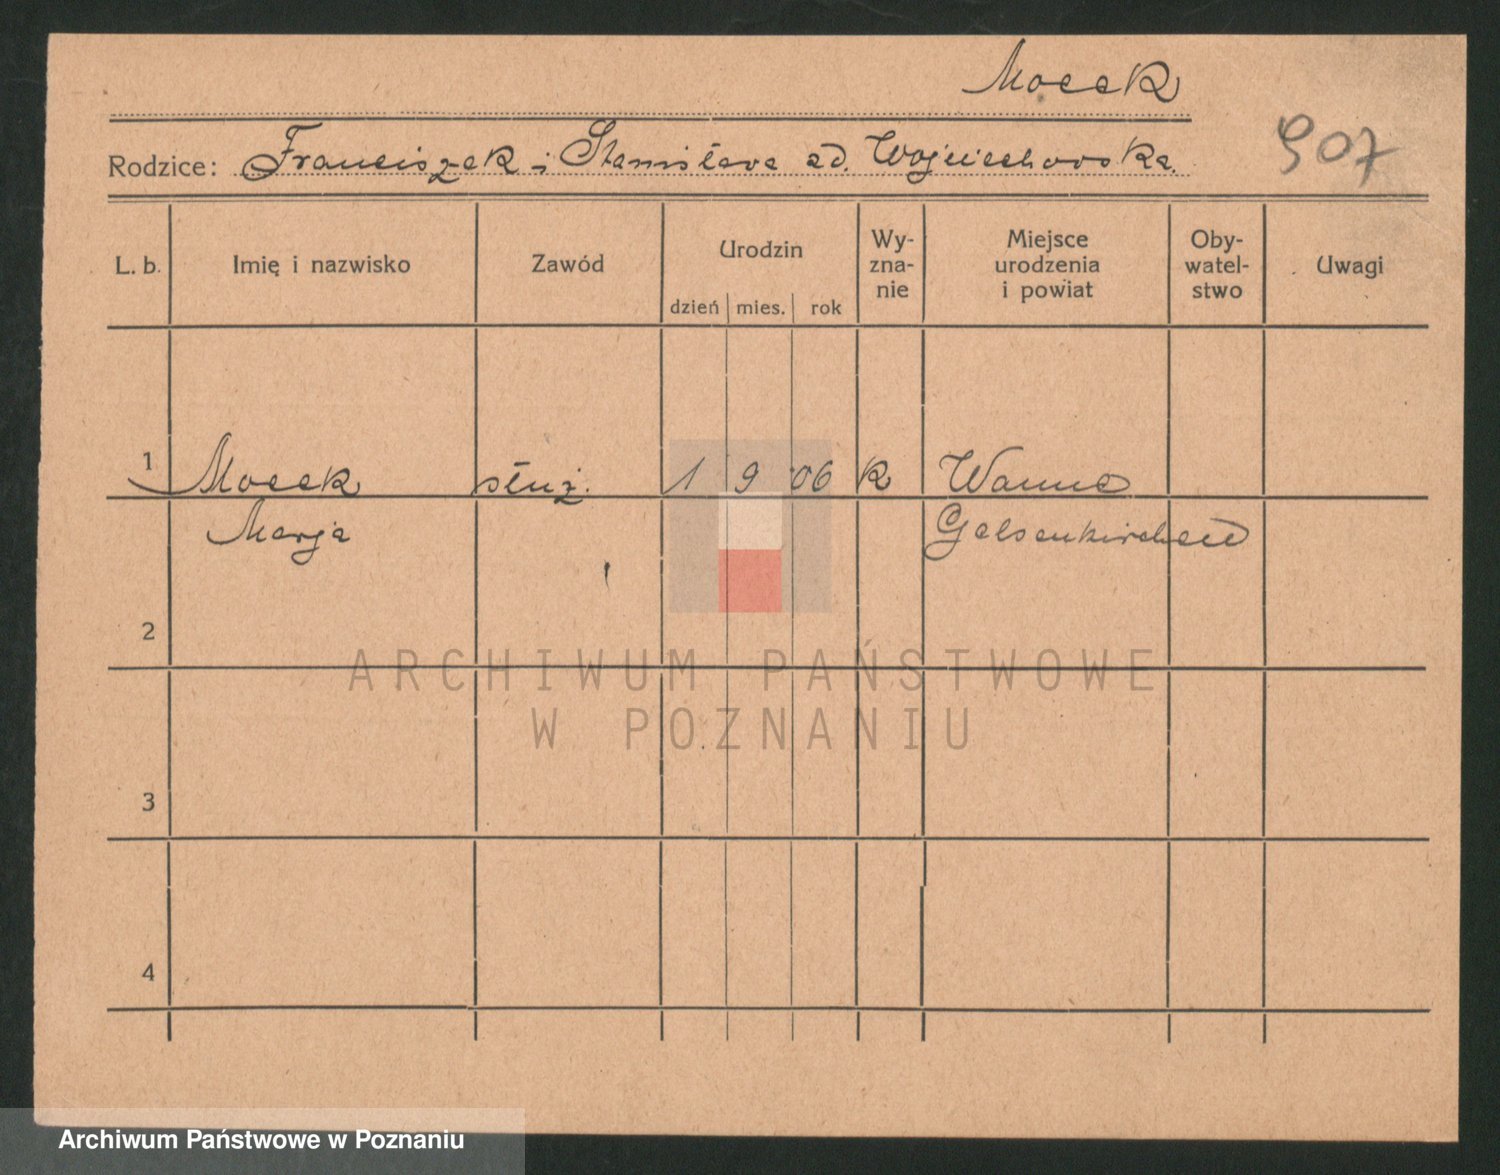 Mocek
Rodzice: Franciszek i Stanisława zd. Wojciechowska
907
L. b. Imię i nazwisko Zawód Urodzin dzień mies. rok Wy-zna-nie Miejsce urodzenia i powiat Oby-watel-stwo Uwagi
1 Mocek służ. 1 9 06 R Wanne
Marja Gelsenkirchen
2
ARCHIWUM PAŃSTWOWE
W POZNANIU
3
4
Archiwum Państwowe w Poznaniu